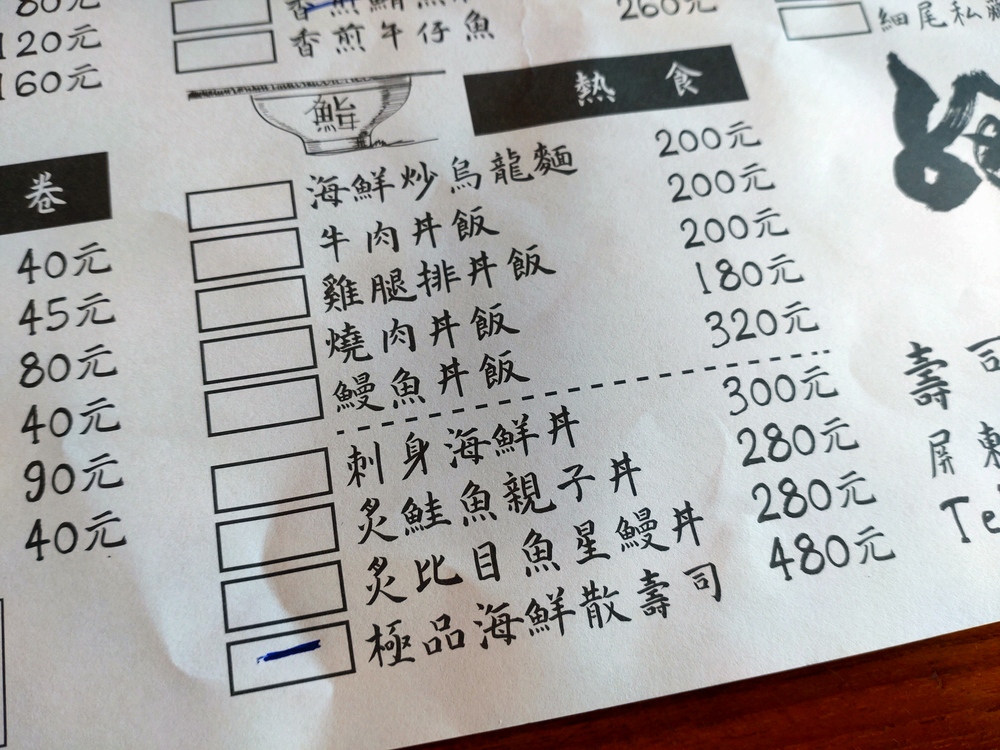 80元
120元
160元
香煎午仔魚
260元
細尾私
卷
40元
45元
80元
40元
90元
40元
鮨
熱食
海鮮炒烏龍麵 200元
牛肉丼飯 200元
雞腿排丼飯 200元
燒肉丼飯 180元
鰻魚丼飯 320元
刺身海鮮丼 300元
炙鮭魚親子丼 280元
炙比目魚星鰻丼 280元
極品海鮮散壽司 480元
壽司
屏東
Te